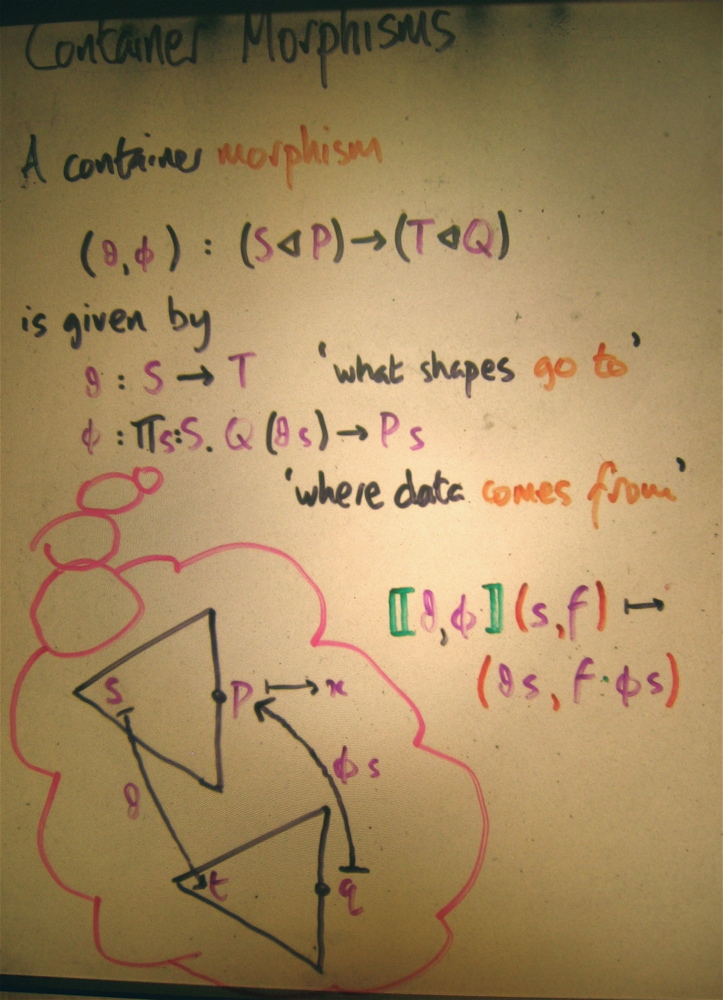 Container Morphisms
A container morphism
(ϑ,ϕ) : (S◁P)→(T◁Q)
is given by
ϑ : S → T 'what shapes go to'
ϕ : Πs:S. Q(ϑs)→Ps
'where data comes from'
⟦ϑ,ϕ⟧(s,f) ↦
(ϑs, f·ϕs)
s p ↦ x
ϕ s
ϑ
t q